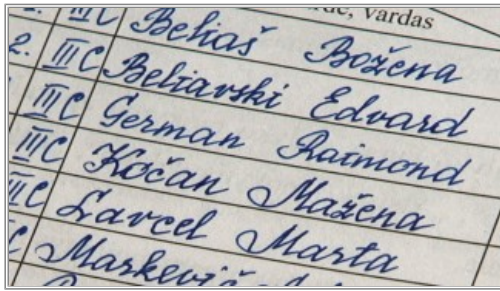 vardas
III C Beliaš Božena
2. III C Beliavski Edvard
III C German Raimond
III C Kočan Mažena
III C Larcel Marta
Markevič